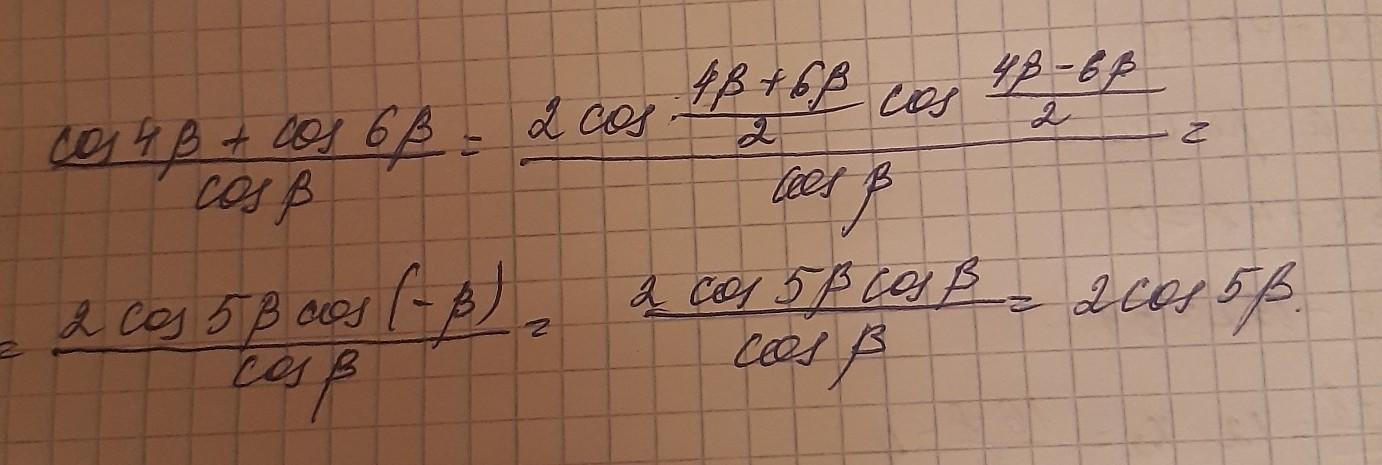 \frac{cos 4β + cos 6β}{cos β} = \frac{2 cos \frac{4β + 6β}{2} cos \frac{4β - 6β}{2}}{cos β} =
= \frac{2 cos 5β cos (-β)}{cos β} = \frac{2 cos 5β cos β}{cos β} = 2 cos 5β.